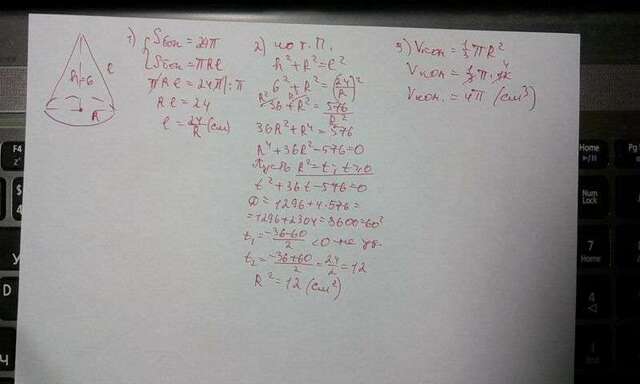 h=6
l
R
1) { Sбок = 24π
Sбок = πRl
πRl = 24π |:π
Rl = 24
l = 24/R (см)
2) по т. П.
h² + R² = l²
6² + R² = (24/R)²
36 + R² = 576/R²
36R² + R⁴ = 576
R⁴ + 36R² - 576 = 0
Пусть R² = t, t ≥ 0
t² + 36t - 576 = 0
D = 1296 + 4·576 =
= 1296 + 2304 = 3600 = 60²
t₁ = (-36-60)/2 < 0 - не уд.
t₂ = (-36+60)/2 = 24/2 = 12
R² = 12 (см²)
3) Vкон = 1/3 πR²
Vкон = 1/3 π·12 4
Vкон. = 4π (см³)
F4
$
4
D
Home
Num
Lock
7
Home
4
1
End